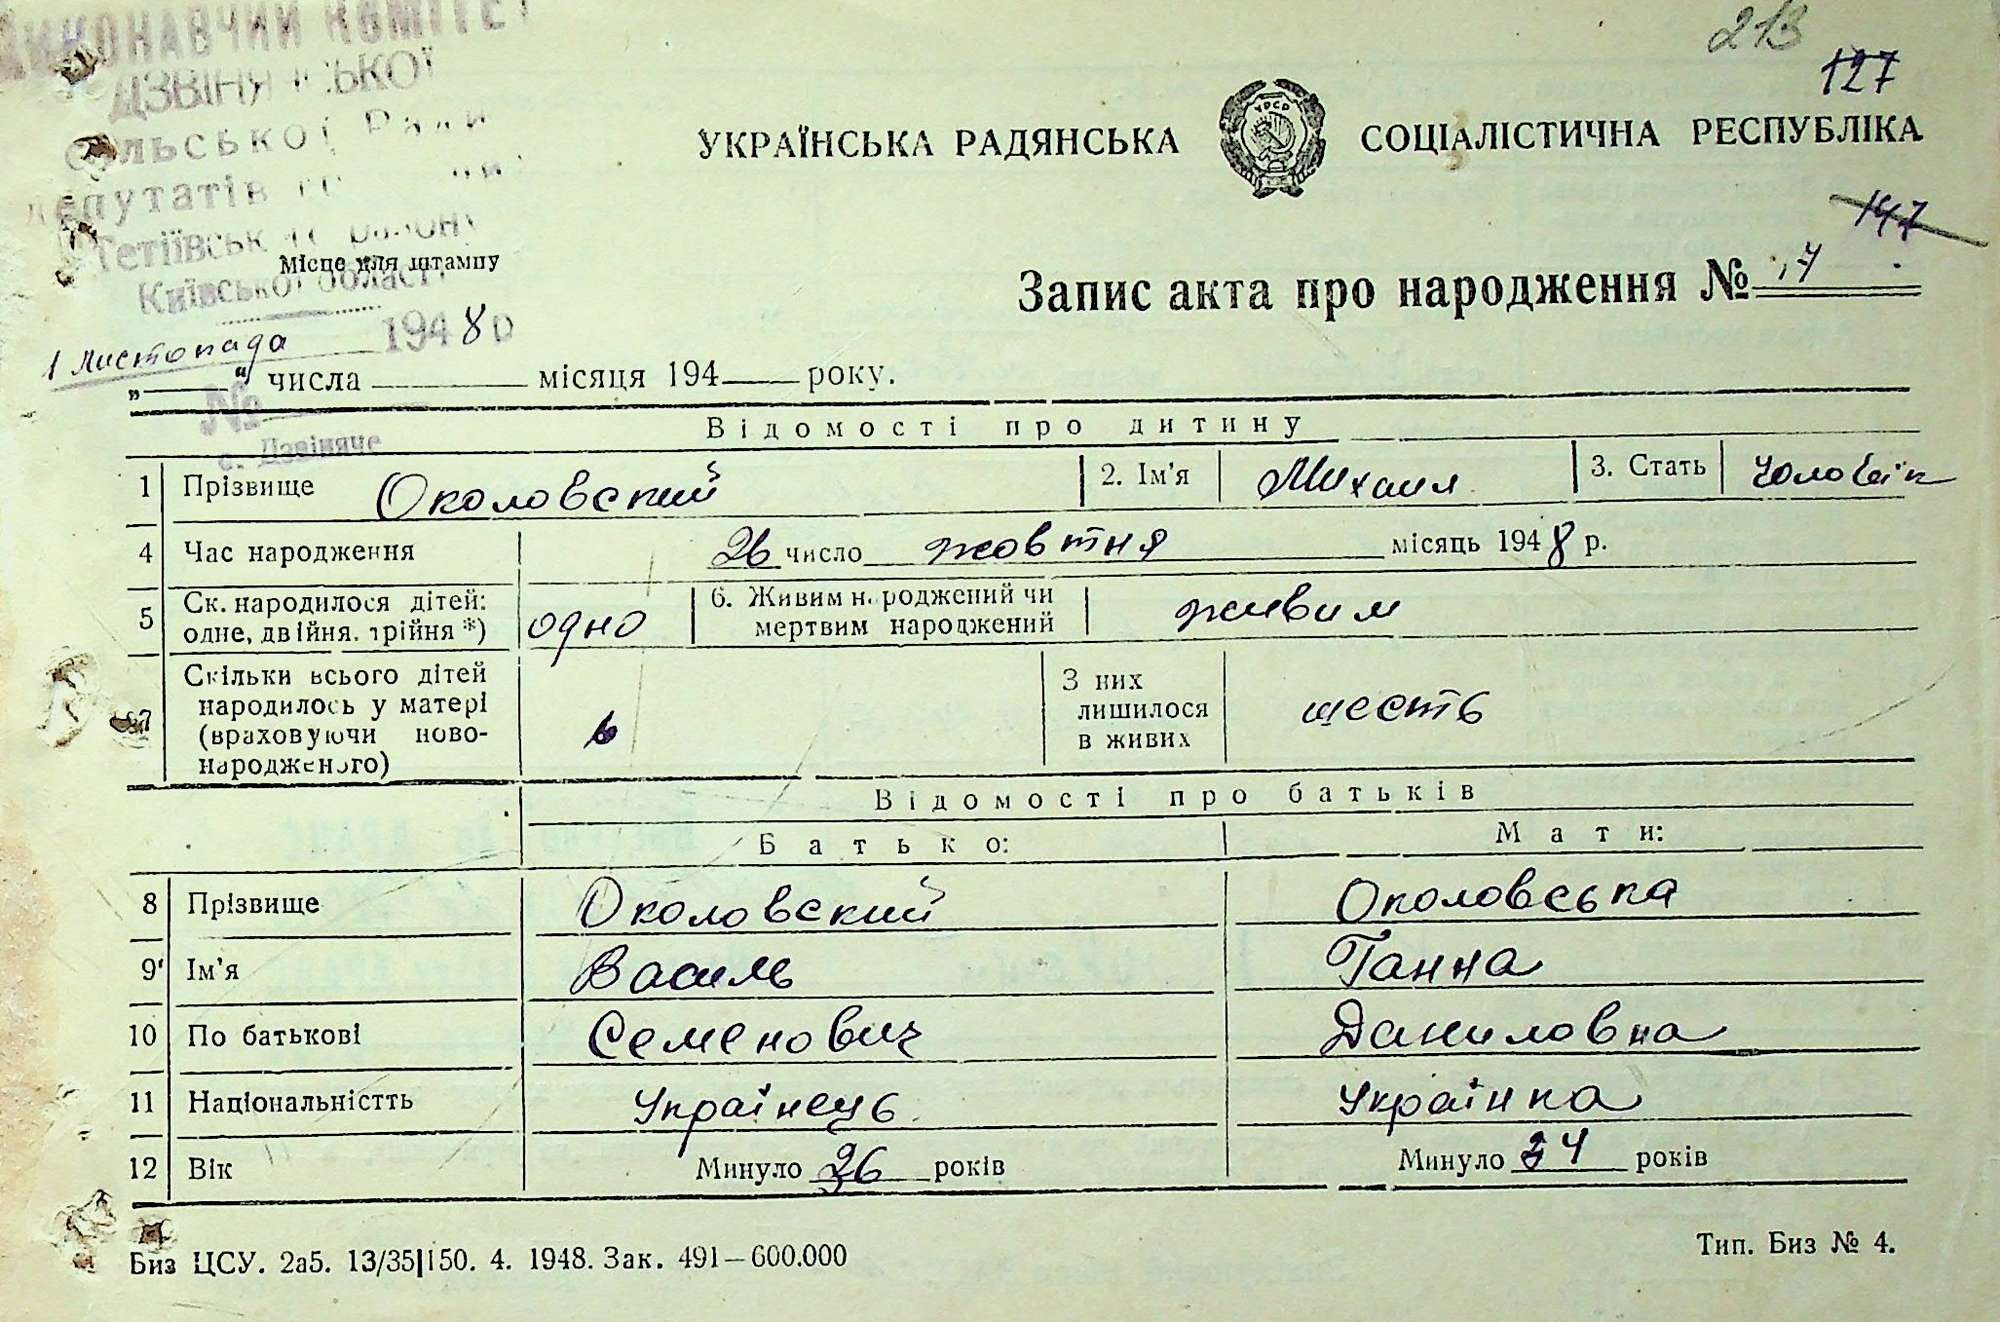 213
127
ВИКОНАВЧИЙ КОМІТЕТ
ДЗВІНЯЦЬКОЇ
Сільської Ради
депутатів
Тетіївськ району
Місце для штампу
Київської області
1 листопада 1948 р
УКРАЇНСЬКА РАДЯНСЬКА СОЦІАЛІСТИЧНА РЕСПУБЛІКА
147
Запис акта про народження № 17
„ “ числа місяця 194 року.
№
с. Дзвіняче
Відомості про дитину
1 Прізвище Околовский 2. Ім'я Михаил 3. Стать чоловік
4 Час народження 26 число жовтня місяць 1948 р.
5 Ск. народилося дітей: одно 6. Живим народжений чи живим
одне, двійня, трійня *) мертвим народжений
7 Скільки всього дітей 6 З них шесть
народилось у матері лишилося
(враховуючи ново- в живих
народженого)
Відомості про батьків
Батько: Мати:
8 Прізвище Околовский Околовська
9 Ім'я Василь Ганна
10 По батькові Семенович Даниловна
11 Національністть Українець Українка
12 Вік Минуло 36 років Минуло 34 років
Биз ЦСУ. 2а5. 13/35|150. 4. 1948. Зак. 491—600.000 Тип. Биз № 4.